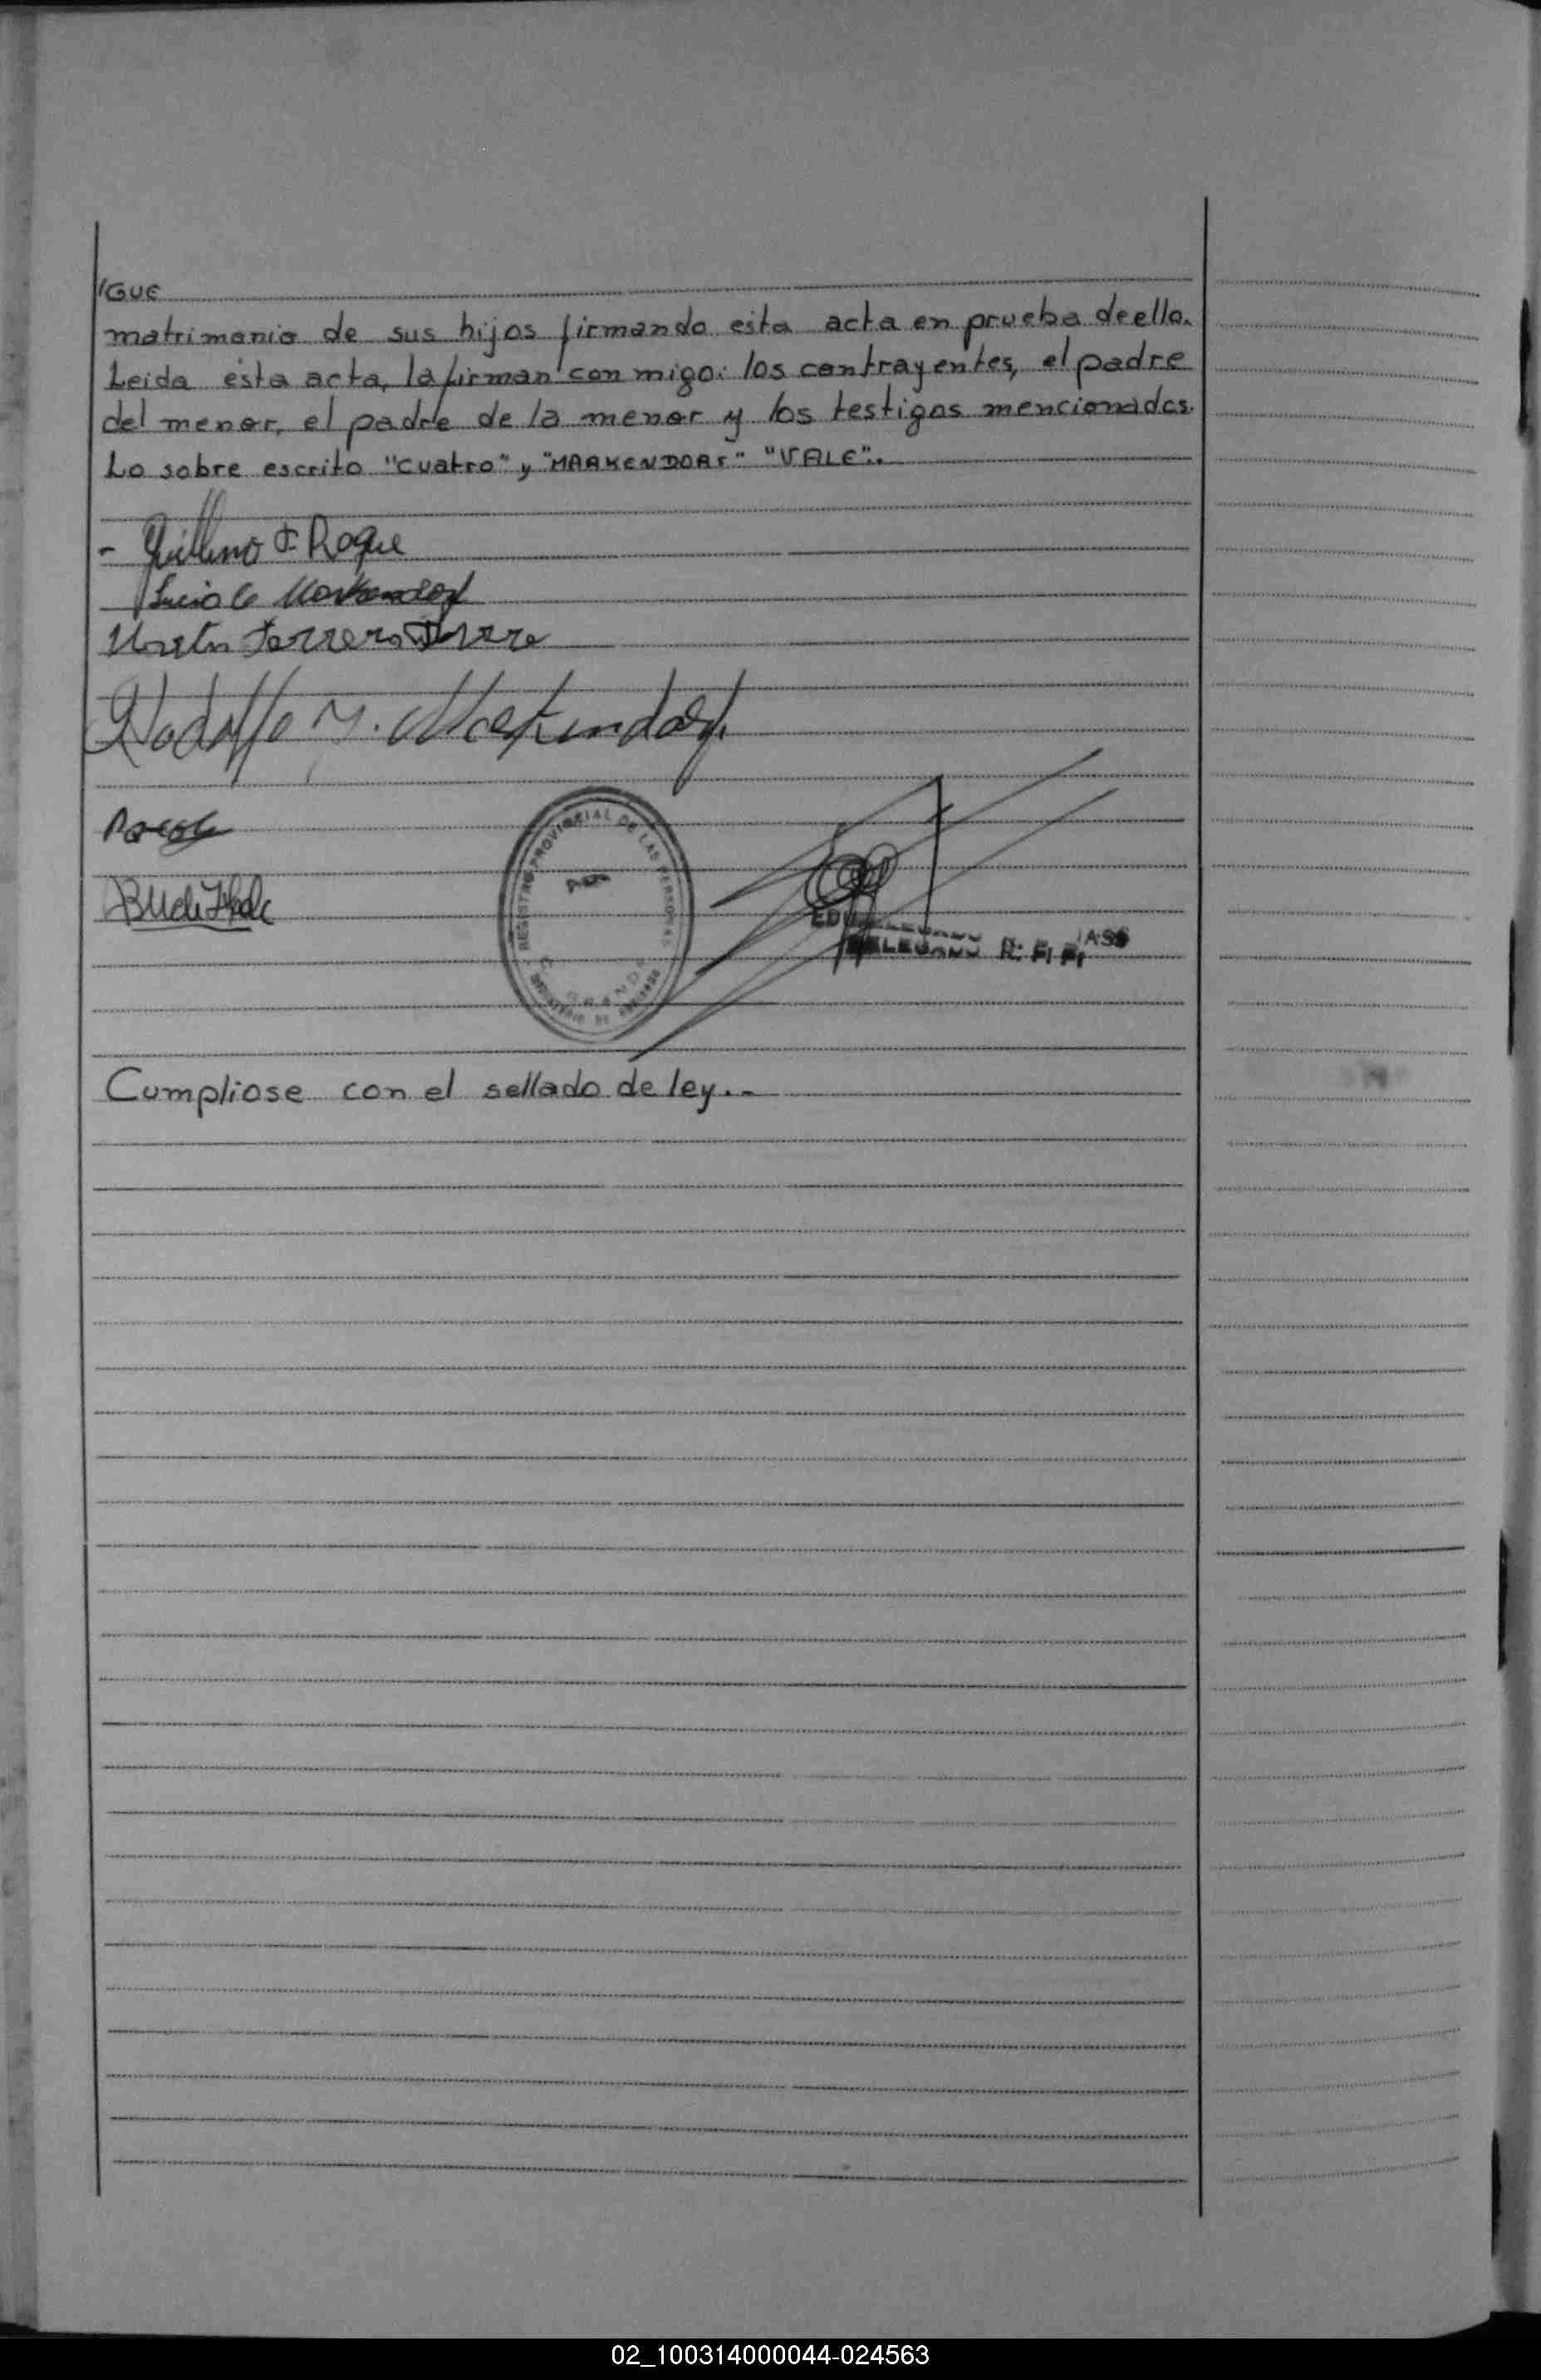 IGUE
matrimonio de sus hijos firmando esta acta en prueba deello.
Leida esta acta, la firman con migo: los contrayentes, el padre
del menor, el padre de la menor y los testigos mencionados.
Lo sobre escrito "cuatro" y "MARKENDORF" "VALE".
- Guillermo F. Roque
Markendorf
Rodolfo M. Markendorf
REGISTRO PROVINCIAL DE LAS PERSONAS
GRANDE
MINISTERIO DE
DELEGADO R.
Cumpliose con el sellado de ley.-
02_100314000044-024563